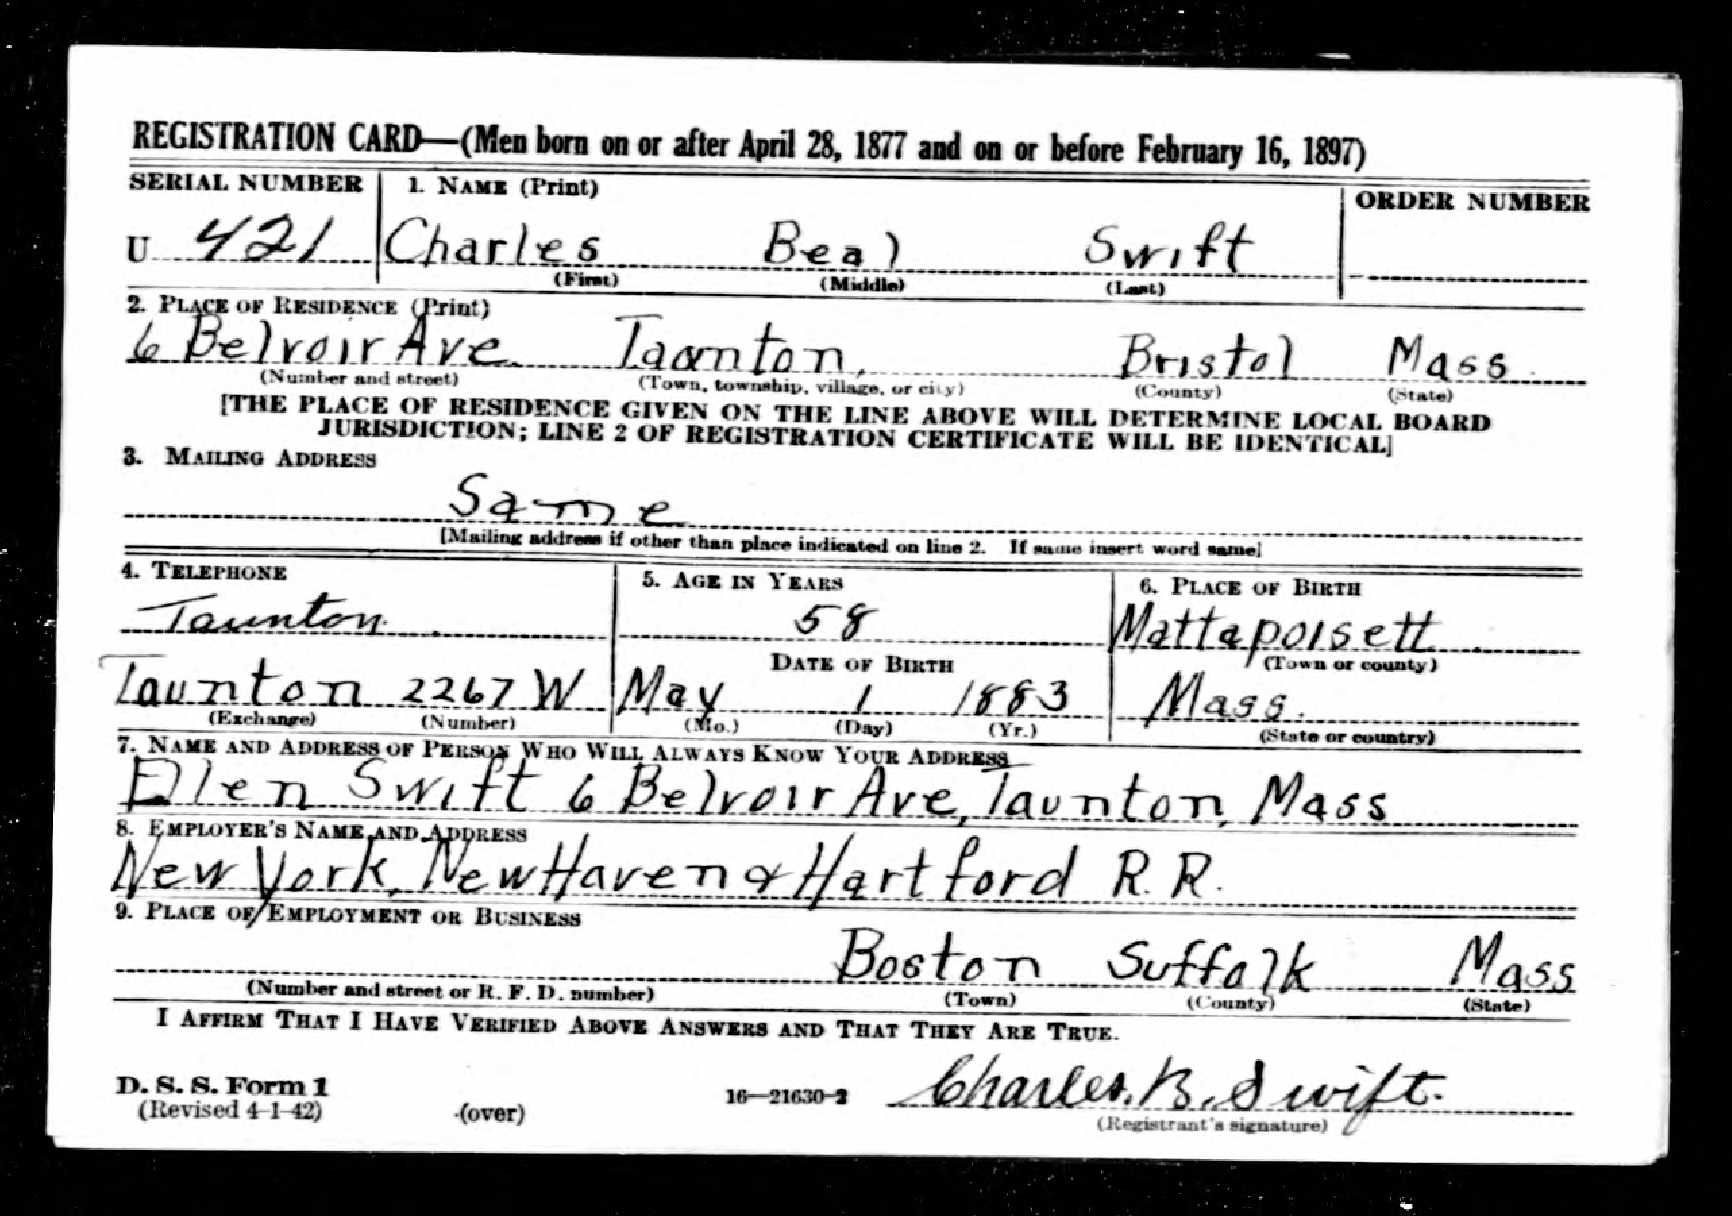 REGISTRATION CARD—(Men born on or after April 28, 1877 and on or before February 16, 1897)
SERIAL NUMBER 1. NAME (Print) ORDER NUMBER
U 421 Charles Beal Swift
(First) (Middle) (Last)
2. PLACE OF RESIDENCE (Print)
6 Belvoir Ave. Taunton, Bristol Mass.
(Number and street) (Town, township, village, or city) (County) (State)
[THE PLACE OF RESIDENCE GIVEN ON THE LINE ABOVE WILL DETERMINE LOCAL BOARD
JURISDICTION; LINE 2 OF REGISTRATION CERTIFICATE WILL BE IDENTICAL]
3. MAILING ADDRESS
Same
[Mailing address if other than place indicated on line 2. If same insert word same]
4. TELEPHONE 5. AGE IN YEARS 6. PLACE OF BIRTH
Taunton. 58 Mattapoisett
DATE OF BIRTH (Town or county)
Taunton 2267 W May 1 1883 Mass.
(Exchange) (Number) (Mo.) (Day) (Yr.) (State or country)
7. NAME AND ADDRESS OF PERSON WHO WILL ALWAYS KNOW YOUR ADDRESS
Ellen Swift 6 Belvoir Ave, Taunton, Mass
8. EMPLOYER'S NAME AND ADDRESS
New York, New Haven & Hartford R. R.
9. PLACE OF EMPLOYMENT OR BUSINESS
Boston Suffolk Mass
(Number and street or R. F. D. number) (Town) (County) (State)
I AFFIRM THAT I HAVE VERIFIED ABOVE ANSWERS AND THAT THEY ARE TRUE.
D. S. S. Form 1
(Revised 4-1-42) (over) 16—21630-2 Charles. B. Swift.
(Registrant's signature)